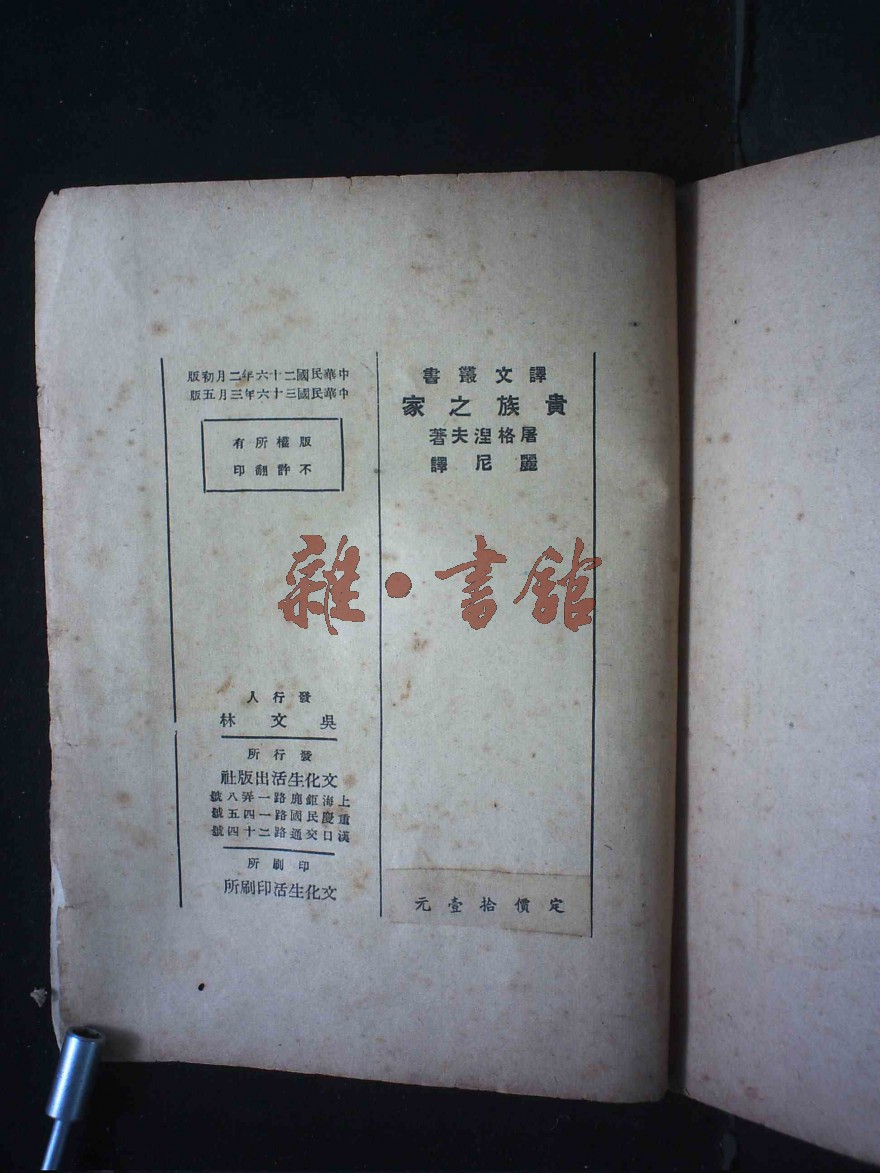 譯文叢書
貴族之家
屠格湼夫著
麗尼譯
定價拾壹元
中華民國二十六年二月初版
中華民國三十六年三月五版
版權所有
不許翻印
發行人
吳文林
發行所
文化生活出版社
上海鉅鹿路一弄八號
重慶民國路一四五號
漢口交通路二十四號
印刷所
文化生活印刷所
雜·書館